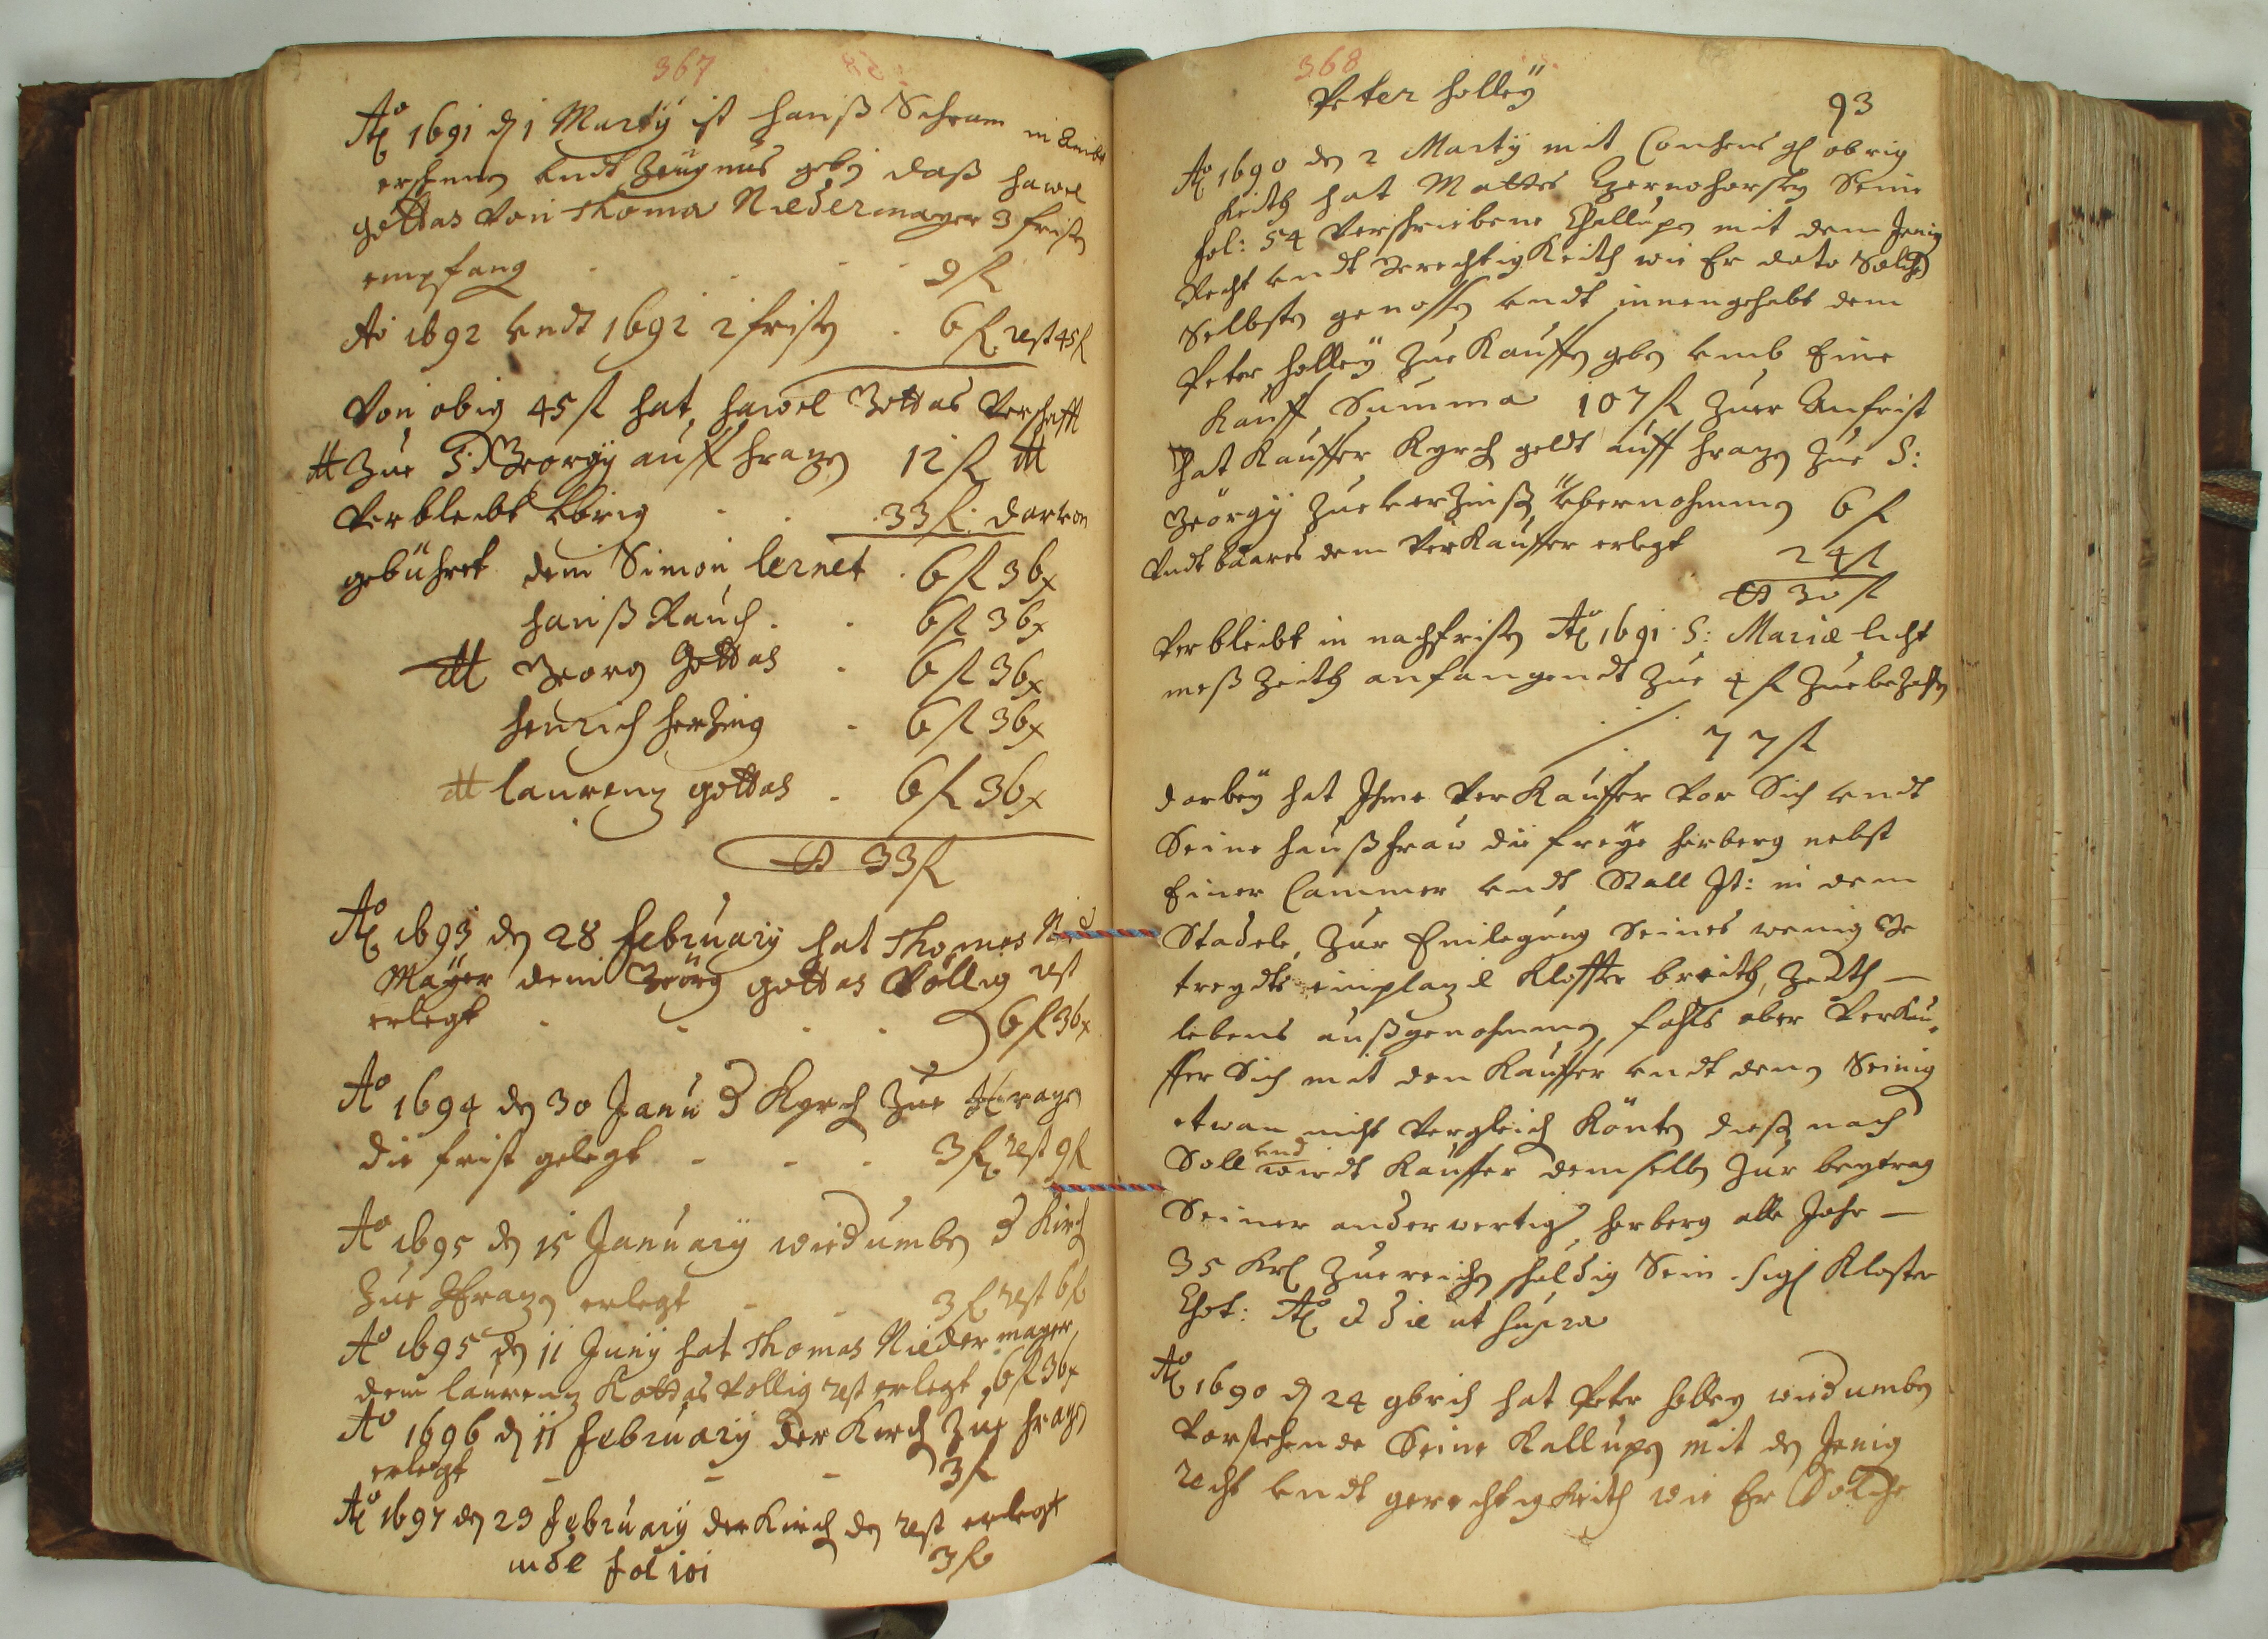 367
Ao 1691 den 1 Marty ist Hanß Schram in Ambt
erschinen undt Zeugnus geben daß Hawel
gottas Von Thoma Nidermayer 3 fristen
empfang . . . 9 fl
Ao 1692 undt 1692 2 fristen . 6 fl rest 45 fl
Von obig 45 fl hat Hawel Gottas Verschafft
Zue S. Georgy auff Hrazen 12 fl
Verbleibt übrig . . 33 fl: darvon
gebühret dem Simon lernet . 6 fl 36 x
Hanß Rauch . . 6 fl 36 x
Georg Gottas . 6 fl 36 x
Henrich Herzing . 6 fl 36 x
laurenz gottas . 6 fl 36 x
33 fl
Ao 1693 den 28 February hat Thomas Nid
Mayer dem Georg gottas Völlig rest
erlegt . . . . 6 fl 36 x
Ao 1694 den 30 Janu d Kyrch Zue Hrazen
die frist gelegt - - . 3 fl rest 9 fl
Ao 1695 den 15 January widumben d Kirch
Zue Hrazen erlegt - - 3 fl rest 6 fl
Ao 1695 den 11 Juny hat Thomas Nieder mayer
dem laurenz Kottas völlig rest erlegt 6 fl 36 x
Ao 1696 den 11 February der Kirch Zue Hrazen
erlegt - - - 3 fl
Ao 1697 den 23 February der Kirch den rest erlegt
3 fl
vide fol 101
368
Peter Holley
93
Ao 1690 den 2 Marty mit Consens gl obrig
Keith hat Mattes Czernohorsky Seine
fol: 54 Verschriebene Challupen mit dem Jenig
Recht undt Gerechtigkeith wie Er dato Solche
Selbsten genossen undt innengehabt dem
Peter Holley Zue Kauffen geben umb Eine
Kauff Summa 107 fl Zuer Anfrist
hat Kauffer Kyrch geldt auff Hrazen Zue S:
Georgy Zueverzinßen übernohmmen 6 fl
Undt baares dem Verkauffer erlegt 24 fl
30 fl
Verbleibt in nachfristen Ao 1691 S: Mariae licht
meß Zeith anfangendt Zue 4 fl Zuebezahlen
77 fl
darbey hat Ihme Verkauffer vor Sich undt
Seine Haußfrau die freye Herberg nebst
Einer Cammer undt Stall It: in dem
Stadele Zur Einlegung Seines wenig Ge
treydts einplazl Klaffter breith, Zeith
lebens außgenohmmen, fahls aber Verkau
ffer Sich mit den Kauffer undt denen Seinig
etwan nicht Vergleich Könten dießen nach
Soll und wirdt Kauffer demselben Zur beytrag
Seiner anderwertigen Herberg alle Jahr
35 Krl Zuereichen schuldig Sein. Sigl Kloster
Chot: Ao et die ut supra
Ao 1690 den 24 9brich hat Peter Holley widumben
Vorstehende Seine Kallupen mit den Jenig
recht undt gerechtigkeith wie Er Solche